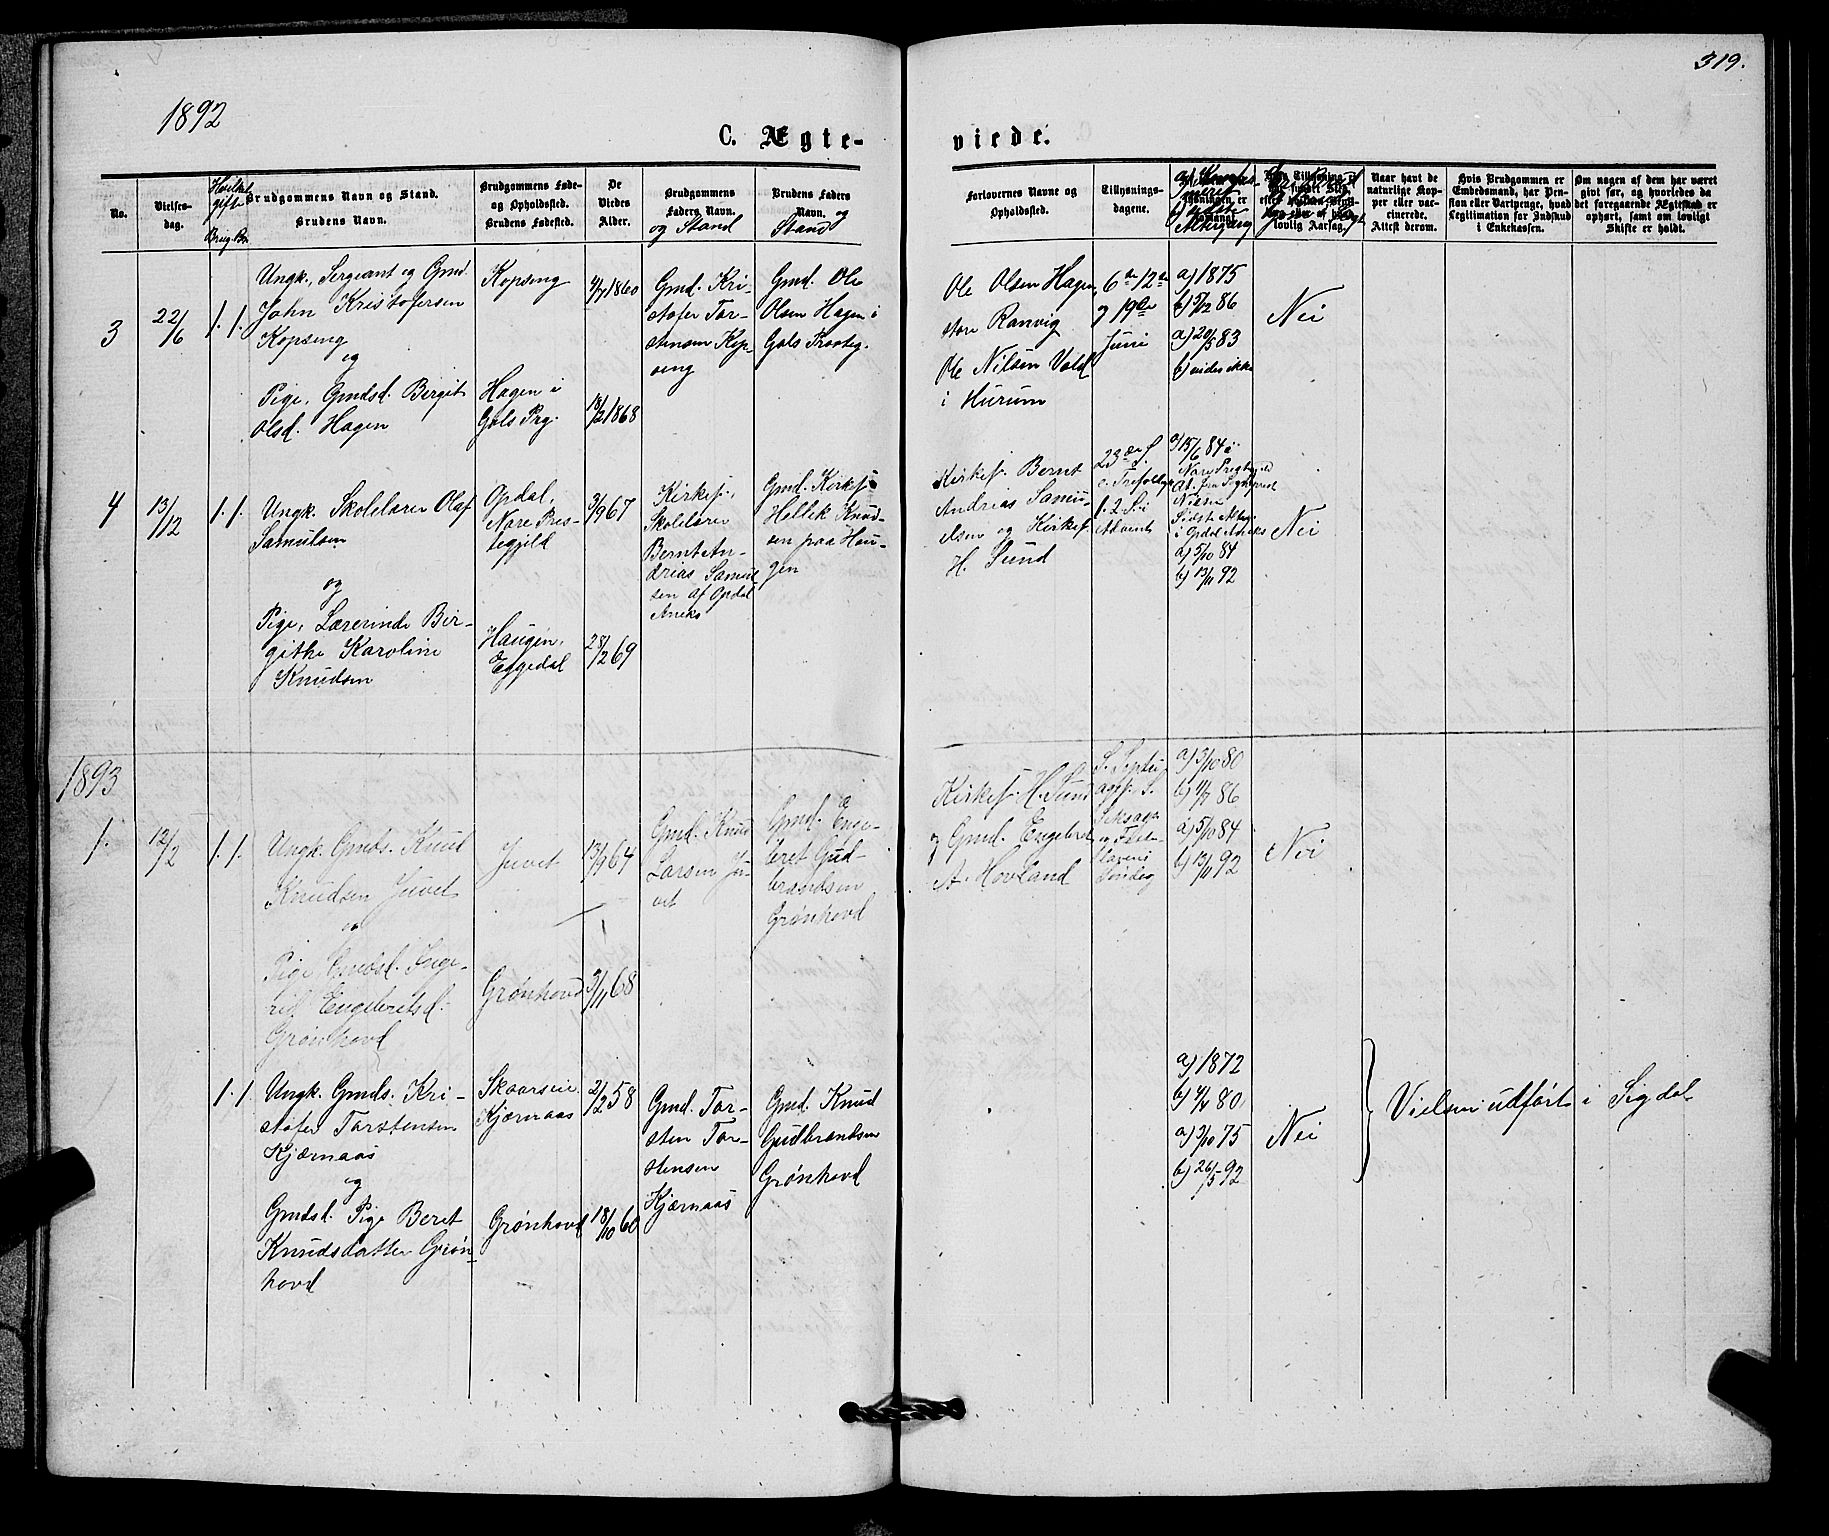 319.
1892
C. Ægte-
viede.
No.
Vielses-
dag.
Hvilket
gift
Brug. Br.
Brudgommens Navn og Stand.
Brudens Navn.
Brudgommens Føde-
og Opholdssted.
Brudens Fødested.
De
Viedes
Alder.
Brudgommens
Faders Navn.
og Stand
Brudens Faders
Navn. og
Stand
Forlovernes Navne og
Opholdssted.
Tillysnings-
dagene.
lovlig Aarsag.
Naar havt de
naturlige Kop-
per eller vac-
cinerede.
Attest derom.
Hvis Brudgommen er
Embedsmand, har Pen-
sion eller Vartpenge, hvad
Legitimation for Indskud
i Enkekassen.
Om nogen af dem har været
gift før, og hvorledes da
det foregaaende Ægteskab er
ophørt, samt om lovligt
Skifte er holdt.
3
22/6
1. 1.
Ungk., Sergeant og Gmd.
John Kristofersen
Kopseng
og
Pige, Gmdsd. Birgit
Olsd. Hagen
Kopseng
Hagen i
Gols Prg.
4/7 1860
18/2 1868
Gmd. Kri-
stofer Tor-
stensen Kop-
seng
Gmd. Ole
Olsen Hagen i
Gols
Ole Olsen Hagen
store Ranvig
Ole Nilsen Vold
i Hurum
6te 12te
og 19de
Juni
a) 1875
b) 5/12 86
a) 20/5 83
b) vides ikke
Nei
4
13/12
1. 1.
Ungk. Skolelærer Olaf
Samulsen
og
Pige, Lærerinde Bir-
githe Karoline
Knudsen
Opdal,
Nore Pres-
tegjeld
Haugen,
Eggedal
3/9 67
28/2 69
Kirkes.,
Skolelærer
Bernt An-
drias Samul-
sen af Opdal
Aneks
Gmd. Kirkes.
Hellek Knud-
sen paa Hau-
gen
Kirkes. Bernt
Andrias Samu-
elsen og Kirkes.
H. Sund
23de S.
e. Trefoldigh.
1. 2. S. i
Advent
a) 15/6 84 i
Nore Prestegjeld
At. fra Sogneprest
Nilsen
Sidste Alterg.
i Opdal Aneks
a) 5/10 84
b) 13/11 92
Nei
1893
1.
12/2
1. 1.
Ungk. Gmds. Knud
Knudsen Juvet
og
Pige Gmdsd. Inge-
rid Engebretsd.
Grønhovd
Juvet
Grønhovd
13/9 64
3/11 68
Gmd. Knud
Larsen Ju-
vet
Gmd. Enge-
bret Gud-
brandsen
Grønhovd
Kirkes. H. Sund
og Gmd. Engebret
A. Hovland
S. Septu-
ages. S.
Seksages.
og Faste-
lavens
Søndag
a) 3/10 80
b) 4/7 86
a) 5/10 84
b) 13/11 92
Nei
1. 1.
Ungk. Gmds. Kri-
stofer Torstensen
Kjærnaas
og
Gmdsd. Pige Beret
Knudsdatter Grøn-
hovd
Skaarseie
Kjærnaas
Grønhovd
2/12 58
18/10 60
Gmd. Tor-
sten Tor-
stensen
Kjærnaas
Gmd. Knud
Gudbrandsen
Grønhovd
a) 1872
b) 4/7 80
a) 3/10 75
b) 26/5 92
Nei
Vielsen udført i Sigdal